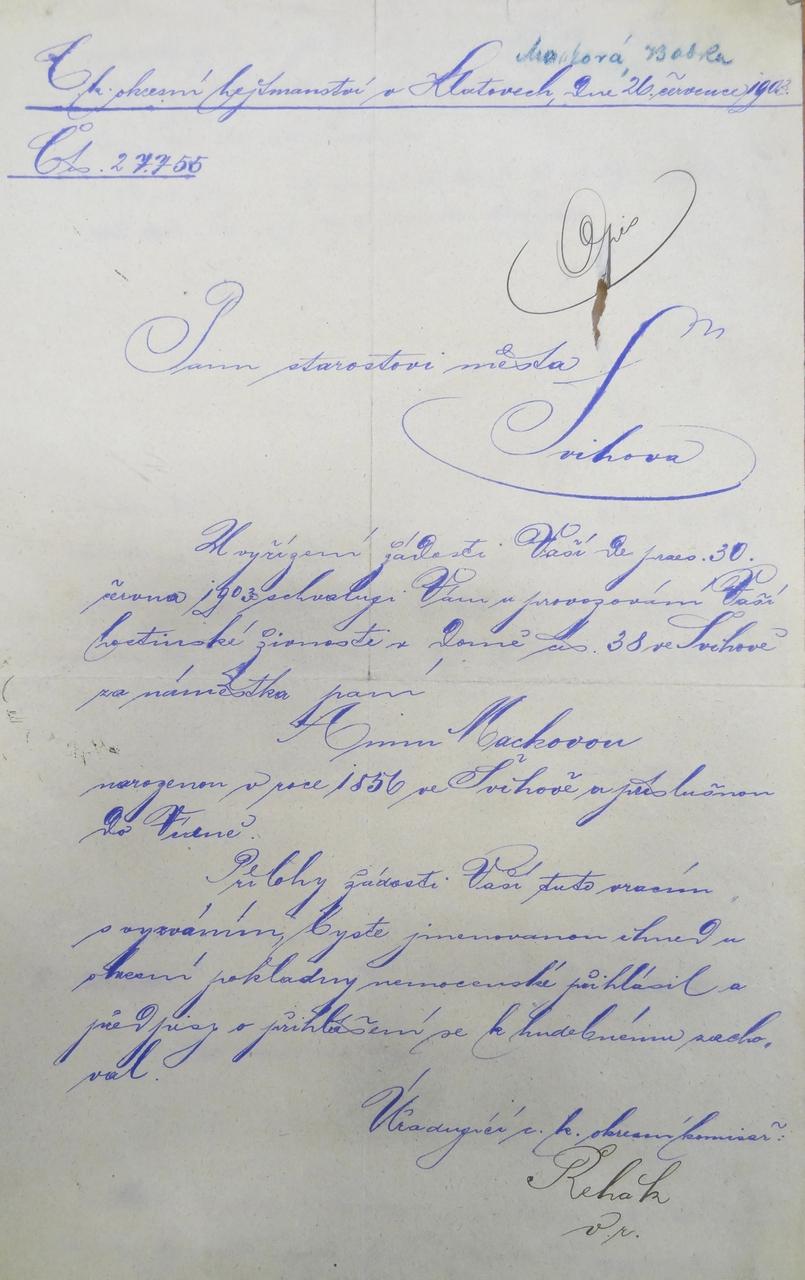 Macková, Babka
C. k. okresní hejtmanství v Klatovech, dne 26. července 1903.
Čís. 27.755
Opis
Panu starostovi města
Švihova
U vyřízení žádosti Vaší de praes. 30.
června 1903 schvaluji Vám v provozování Vaší
hostinské živnosti v domě čís. 38 ve Švihově
za náměstka paní
Annu Mackovou
narozenou v roce 1856 ve Švihově a příslušnou
do
Přílohy žádosti Vaší tuto vracím
s vyzváním, byste jmenovanou ihned u
okresní pokladny nemocenské přihlásil a
předpisy o přihlášení se k hudebnému zacho-
val.
Úřadující c. k. okresní komisař:
Řehák
v. r.